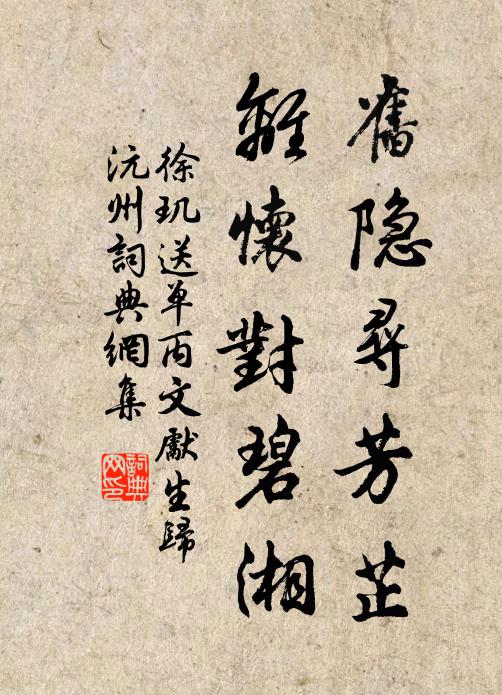 舊隐尋芳芷
離懷對碧湘
徐玑送单丙文獻生歸
沅州詞典網集
詞典网印